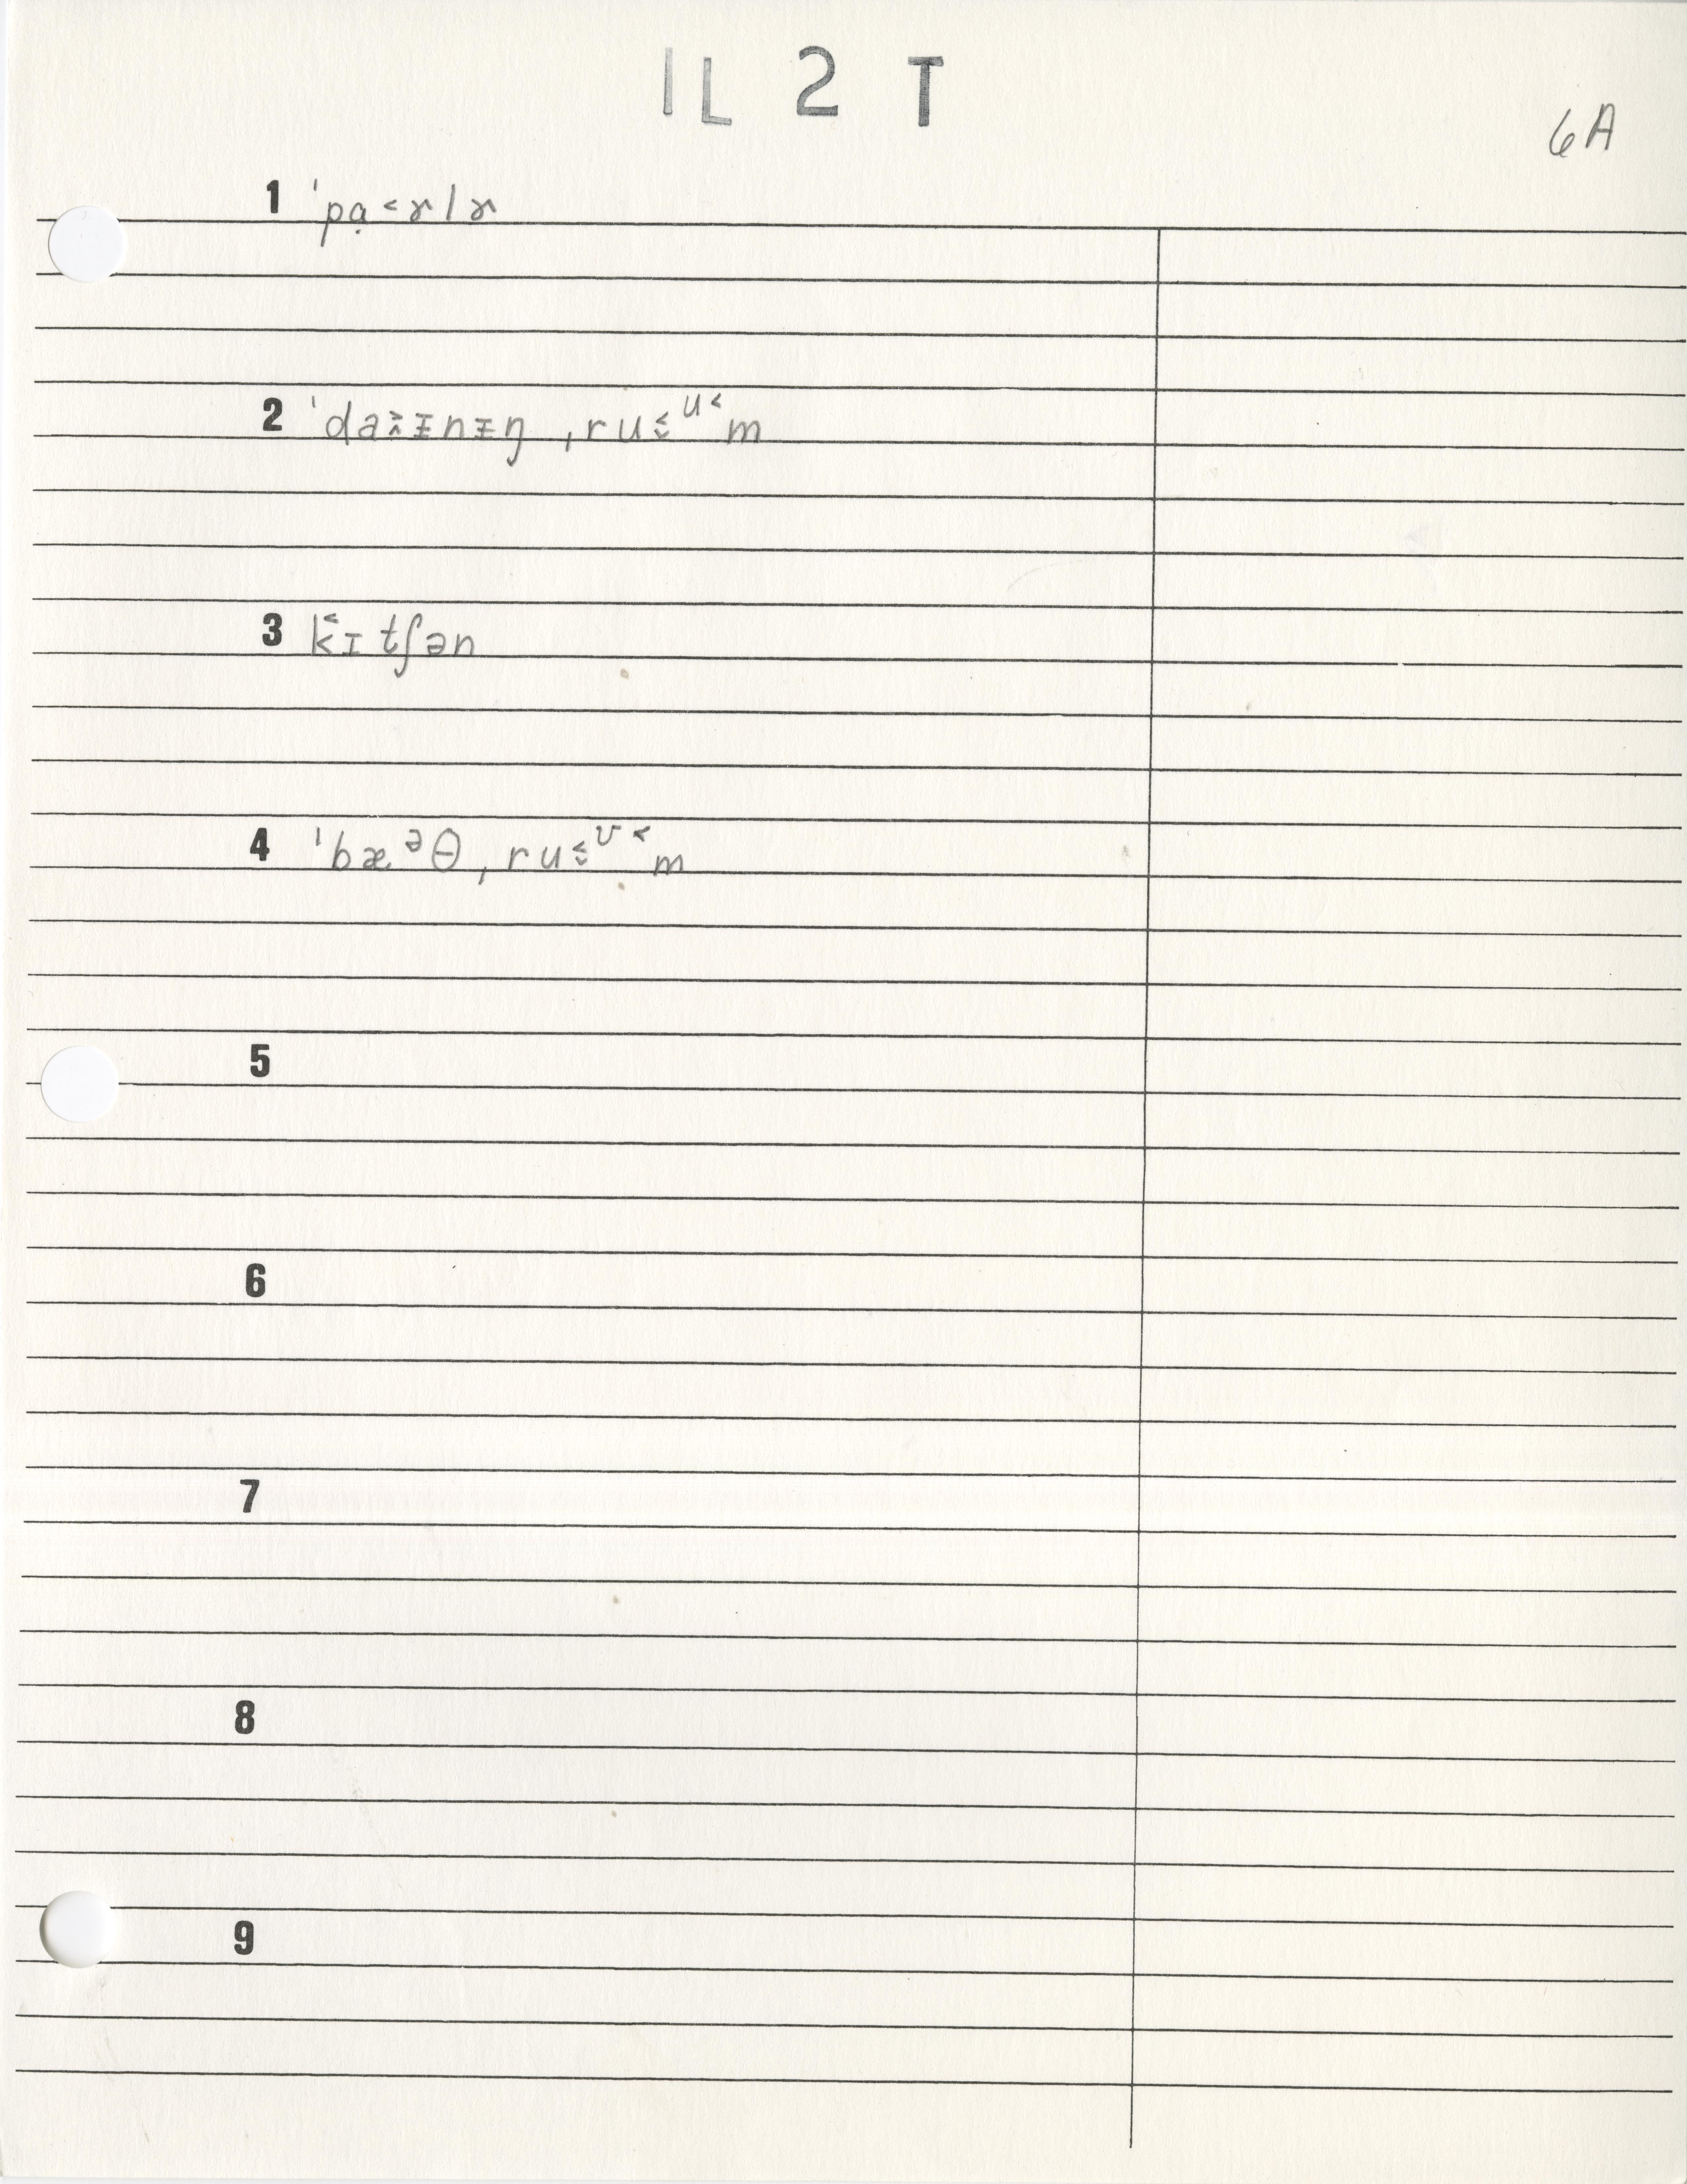 IL 2 T
6A
1 ˈpɑ̣˂ɤlɤ
2 ˈdaꭩɪ̵nɪ̵ŋ ˌru≤ᵘ˂m
3 k̆ɪtʃən
4 ˈbæᵊθˌru≤ᶷ˂m
5
6
7
8
9